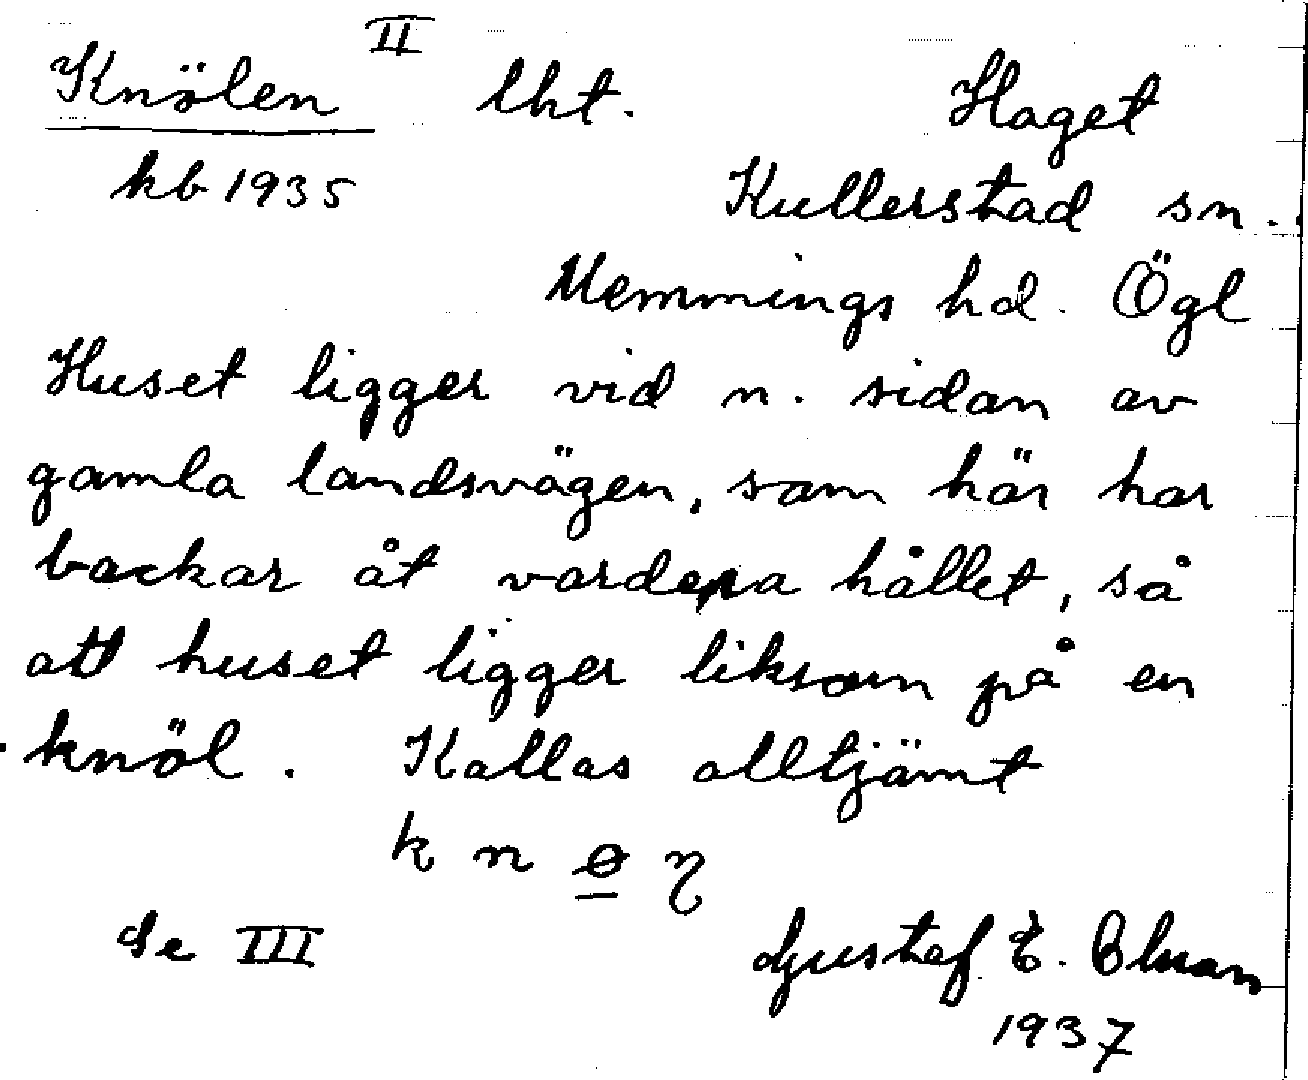 II
Knölen lht. Haget
kb 1935 Kullerstad sn.
Memmings hd. Ögl
Huset ligger vid n. sidan av
gamla landsvägen, som här har
backar åt vardera hållet, så
att huset ligger liksom på en
knöl. Kallas alltjämt
k n ø
Se III Gustaf E.
1937